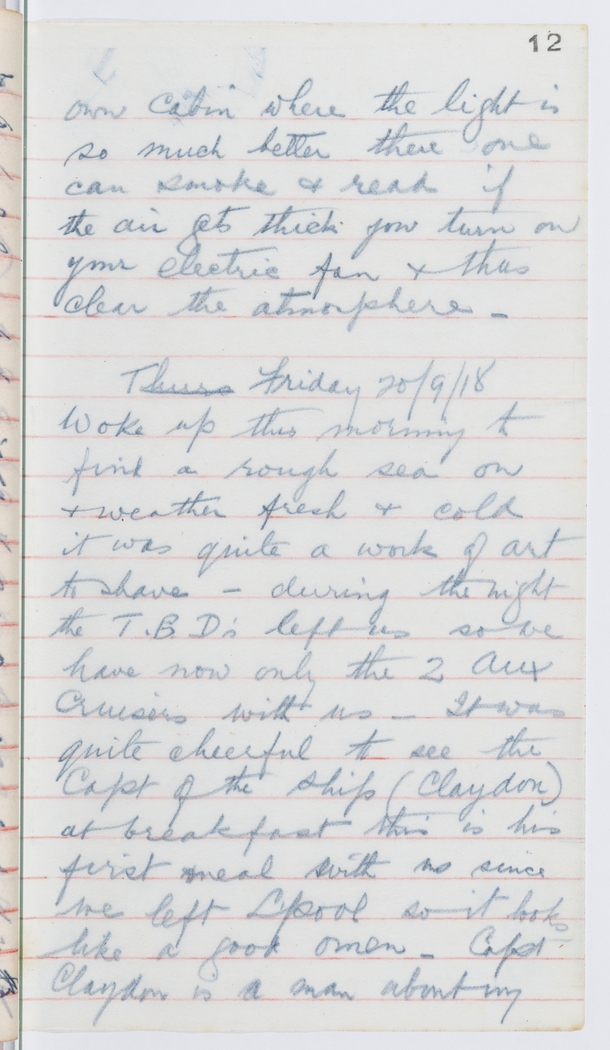 12
own cabin where the light is
so much better there one
can smoke & read if
the air gets thick you turn on
your electric fan & thus
clear the atmosphere –
Thurs Friday 20/9/18
Woke up this morning to
find a rough sea on
& weather fresh & cold
it was quite a work of art
to shave – during the night
the T.B.D's left us so we
have now only the 2 Aux
Cruisers with us – It was
quite cheerful to see the
Capt of the ship (Claydon)
at breakfast this is his
first meal with us since
we left L'pool so it looks
like a good omen – Capt
Claydon is a man about my